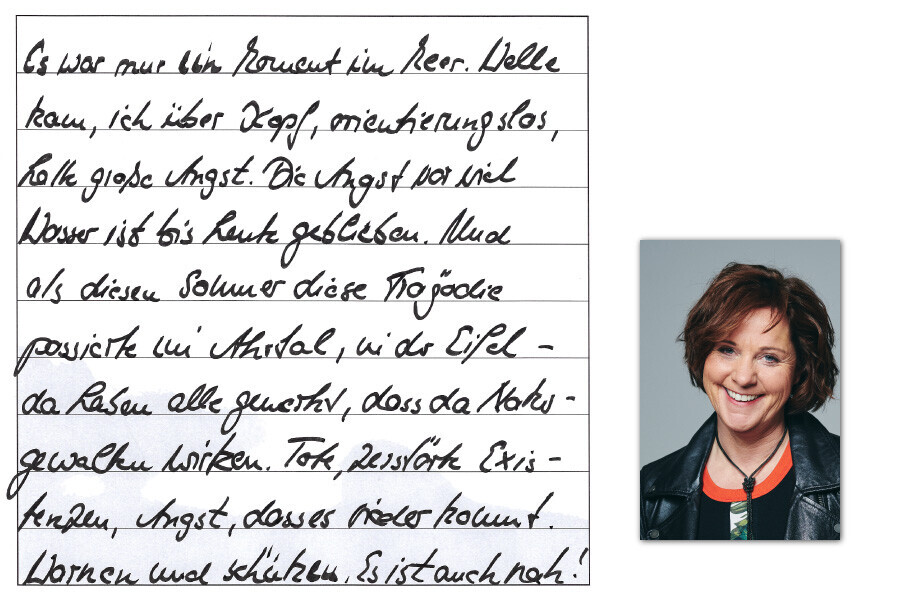 Es war nur ein Moment im Meer. Welle
kam, ich über Kopf, orientierungslos,
hatte große Angst. Die Angst vor viel
Wasser ist bis heute geblieben. Und
als diesen Sommer diese Tragödie
passierte im Ahrtal, in der Eifel -
da haben alle gemerkt, dass da Natur-
gewalten wirken. Tote, zerstörte Exis-
tenzen, Angst, dass es wieder kommt.
Warnen und schützen. Es ist auch nah!